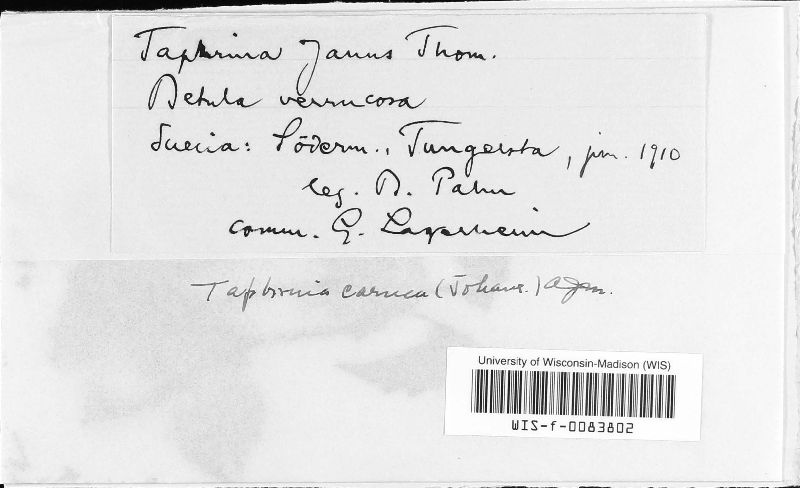 Taphrina Janus Thom.
Betula verrucosa
Suecia: Söderm., Tungelsta, jun. 1910
leg. B. Palm
comm. G. Lagerheim
Taphrinia carnea (Johans.)
University of Wisconsin-Madison (WIS)
WIS-f-0083802